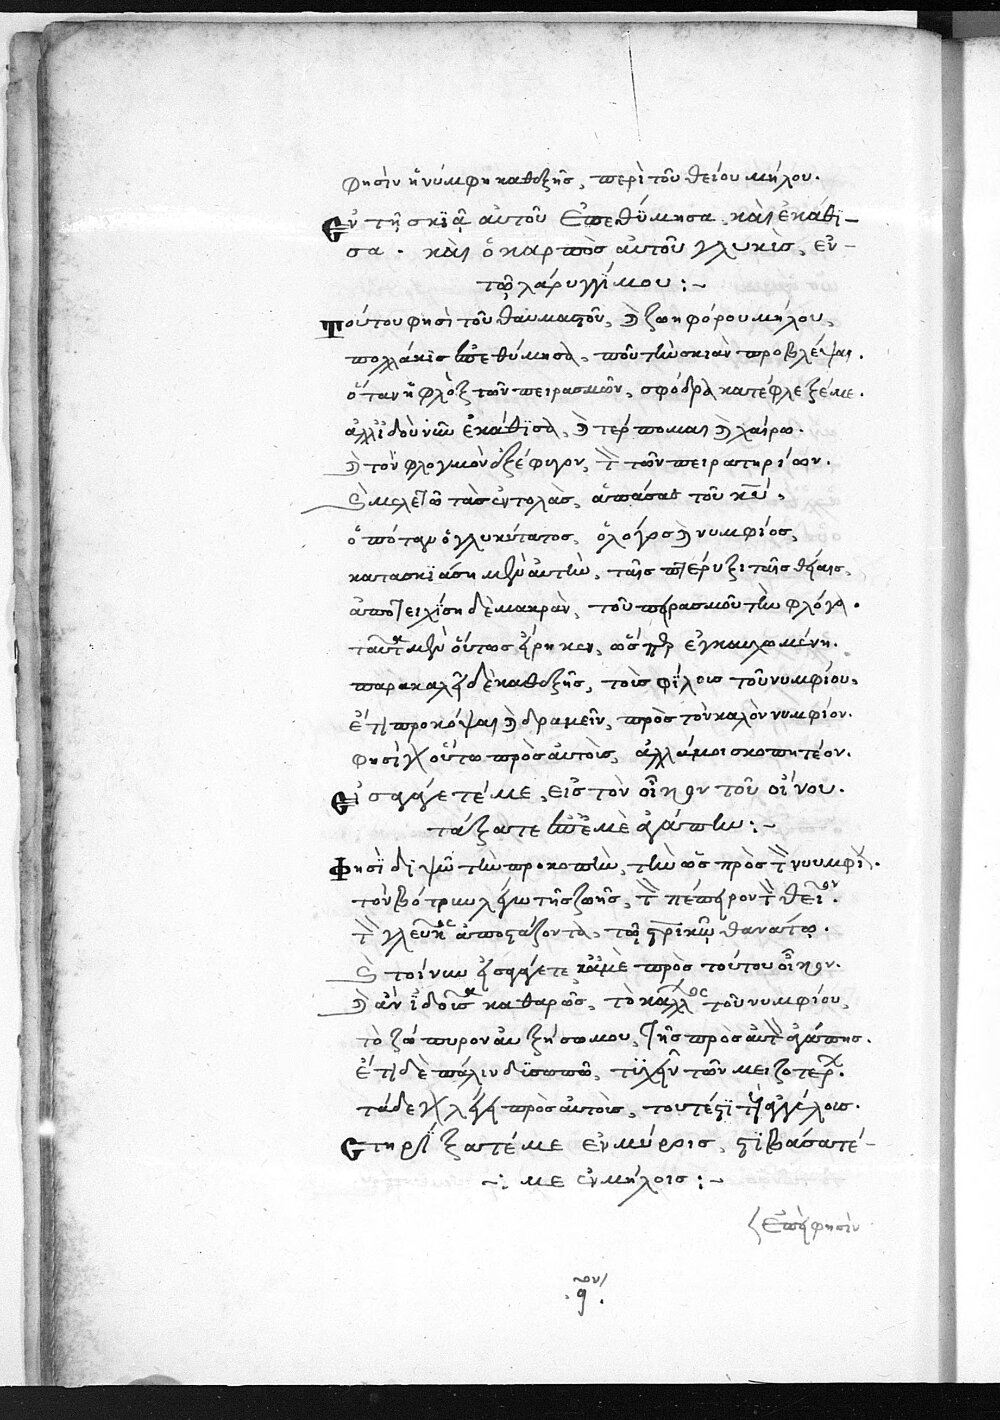 φησὶν ἡ νύμφη καθεξῆς, περὶ τοῦ θείου μήλου.
Ἐν τῇ σκϊᾷ αὐτοῦ ἐπεθύμησα, καὶ ἐκάθϊ-
σα. καὶ ὁ καρπὸς αὐτοῦ γλυκὶς, ἐν
τῷ λάρυγγί μου:~
Τούτου φησὶ τοῦ θαυμαστοῦ, καὶ ζωηφόρου μήλου,
πολλάκις ἐπεθύμησα, που τὴν σκιὰν προβλέψαι.
ὅταν ἡ φλὸξ τῶν πειρασμῶν, σφόδρα κατέφλεξέ με.
ἀλλ' ἰδοὺ νῦν ἐκάθϊσα, καὶ τέρπομαι καὶ χαίρω.
καὶ τὸν φλογμὸν ἐξέφυγον, τὸν τῶν πειρατηρίων.
καὶ μελετῶ τὰς ἐντολὰς, ἁπάσας τοῦ κυρίου,
ὁπόταν ὁ γλυκύτατος, ὁ λόγος καὶ νυμφίος,
κατασκϊάσῃ μὲν αὐτὴν, ταῖς πτέρυξι ταῖς θείαις,
ἀποτειχίσῃ δὲ μακρὰν, τοῦ πειρασμοῦ τὴν φλόγα.
ταῦτα μὲν οὕτως εἴρηκεν, ὥσπερ ἐγκαυχωμένη.
παρακαλεῖ δὲ καθεξῆς, τοῖς φίλοις τοῦ νυμφίου,
ἔτι προκόψαι καὶ δραμεῖν, πρὸς τὸν καλὸν νυμφίον.
φησὶ γὰρ οὕτω πρὸς αὐτοὺς, ἀλλά μοι σκοπητέον.
Εἰσαγάγετέ με, εἰς τὸν οἶκον τοῦ οἴνου.
τάξατε ἐπ' ἐμὲ ἀγάπην:~
Φησὶ διψῶ τὴν προκοπὴν, τὴν ὡς πρὸς τὸν νυμφίον.
τὸν βότρυν λέγω τῆς ζωῆς, τὸν πέπειρον τὸν θεῖον.
τὸν γλεῦκος ἀποστάζοντα, τῷ σταυρικῷ θανάτῳ.
καὶ τοίνυν εἰσαγάγετε κἀμὲ πρὸς τούτου οἶκον.
καὶ ἂν ἰδοῦσα καθαρῶς, τὸ κάλλος τοῦ νυμφίου,
τὸ ζώπυρον αὐξήσω μου, τῆς πρὸς αὐτὸν ἀγάπης.
ἔτι δὲ πάλιν δϊσωπῶ, τϋχεῖν τῶν μειζοτέρων.
τάδε γὰρ λέγει πρὸς αὐτοὺς, τουτέστι τοῖς ἀγγέλοις.
Στηρΐξατέ με ἐν μύροις, στϊβάσατέ-
~: με ἐν μήλοις:~
ἐπεὶ φησὶν